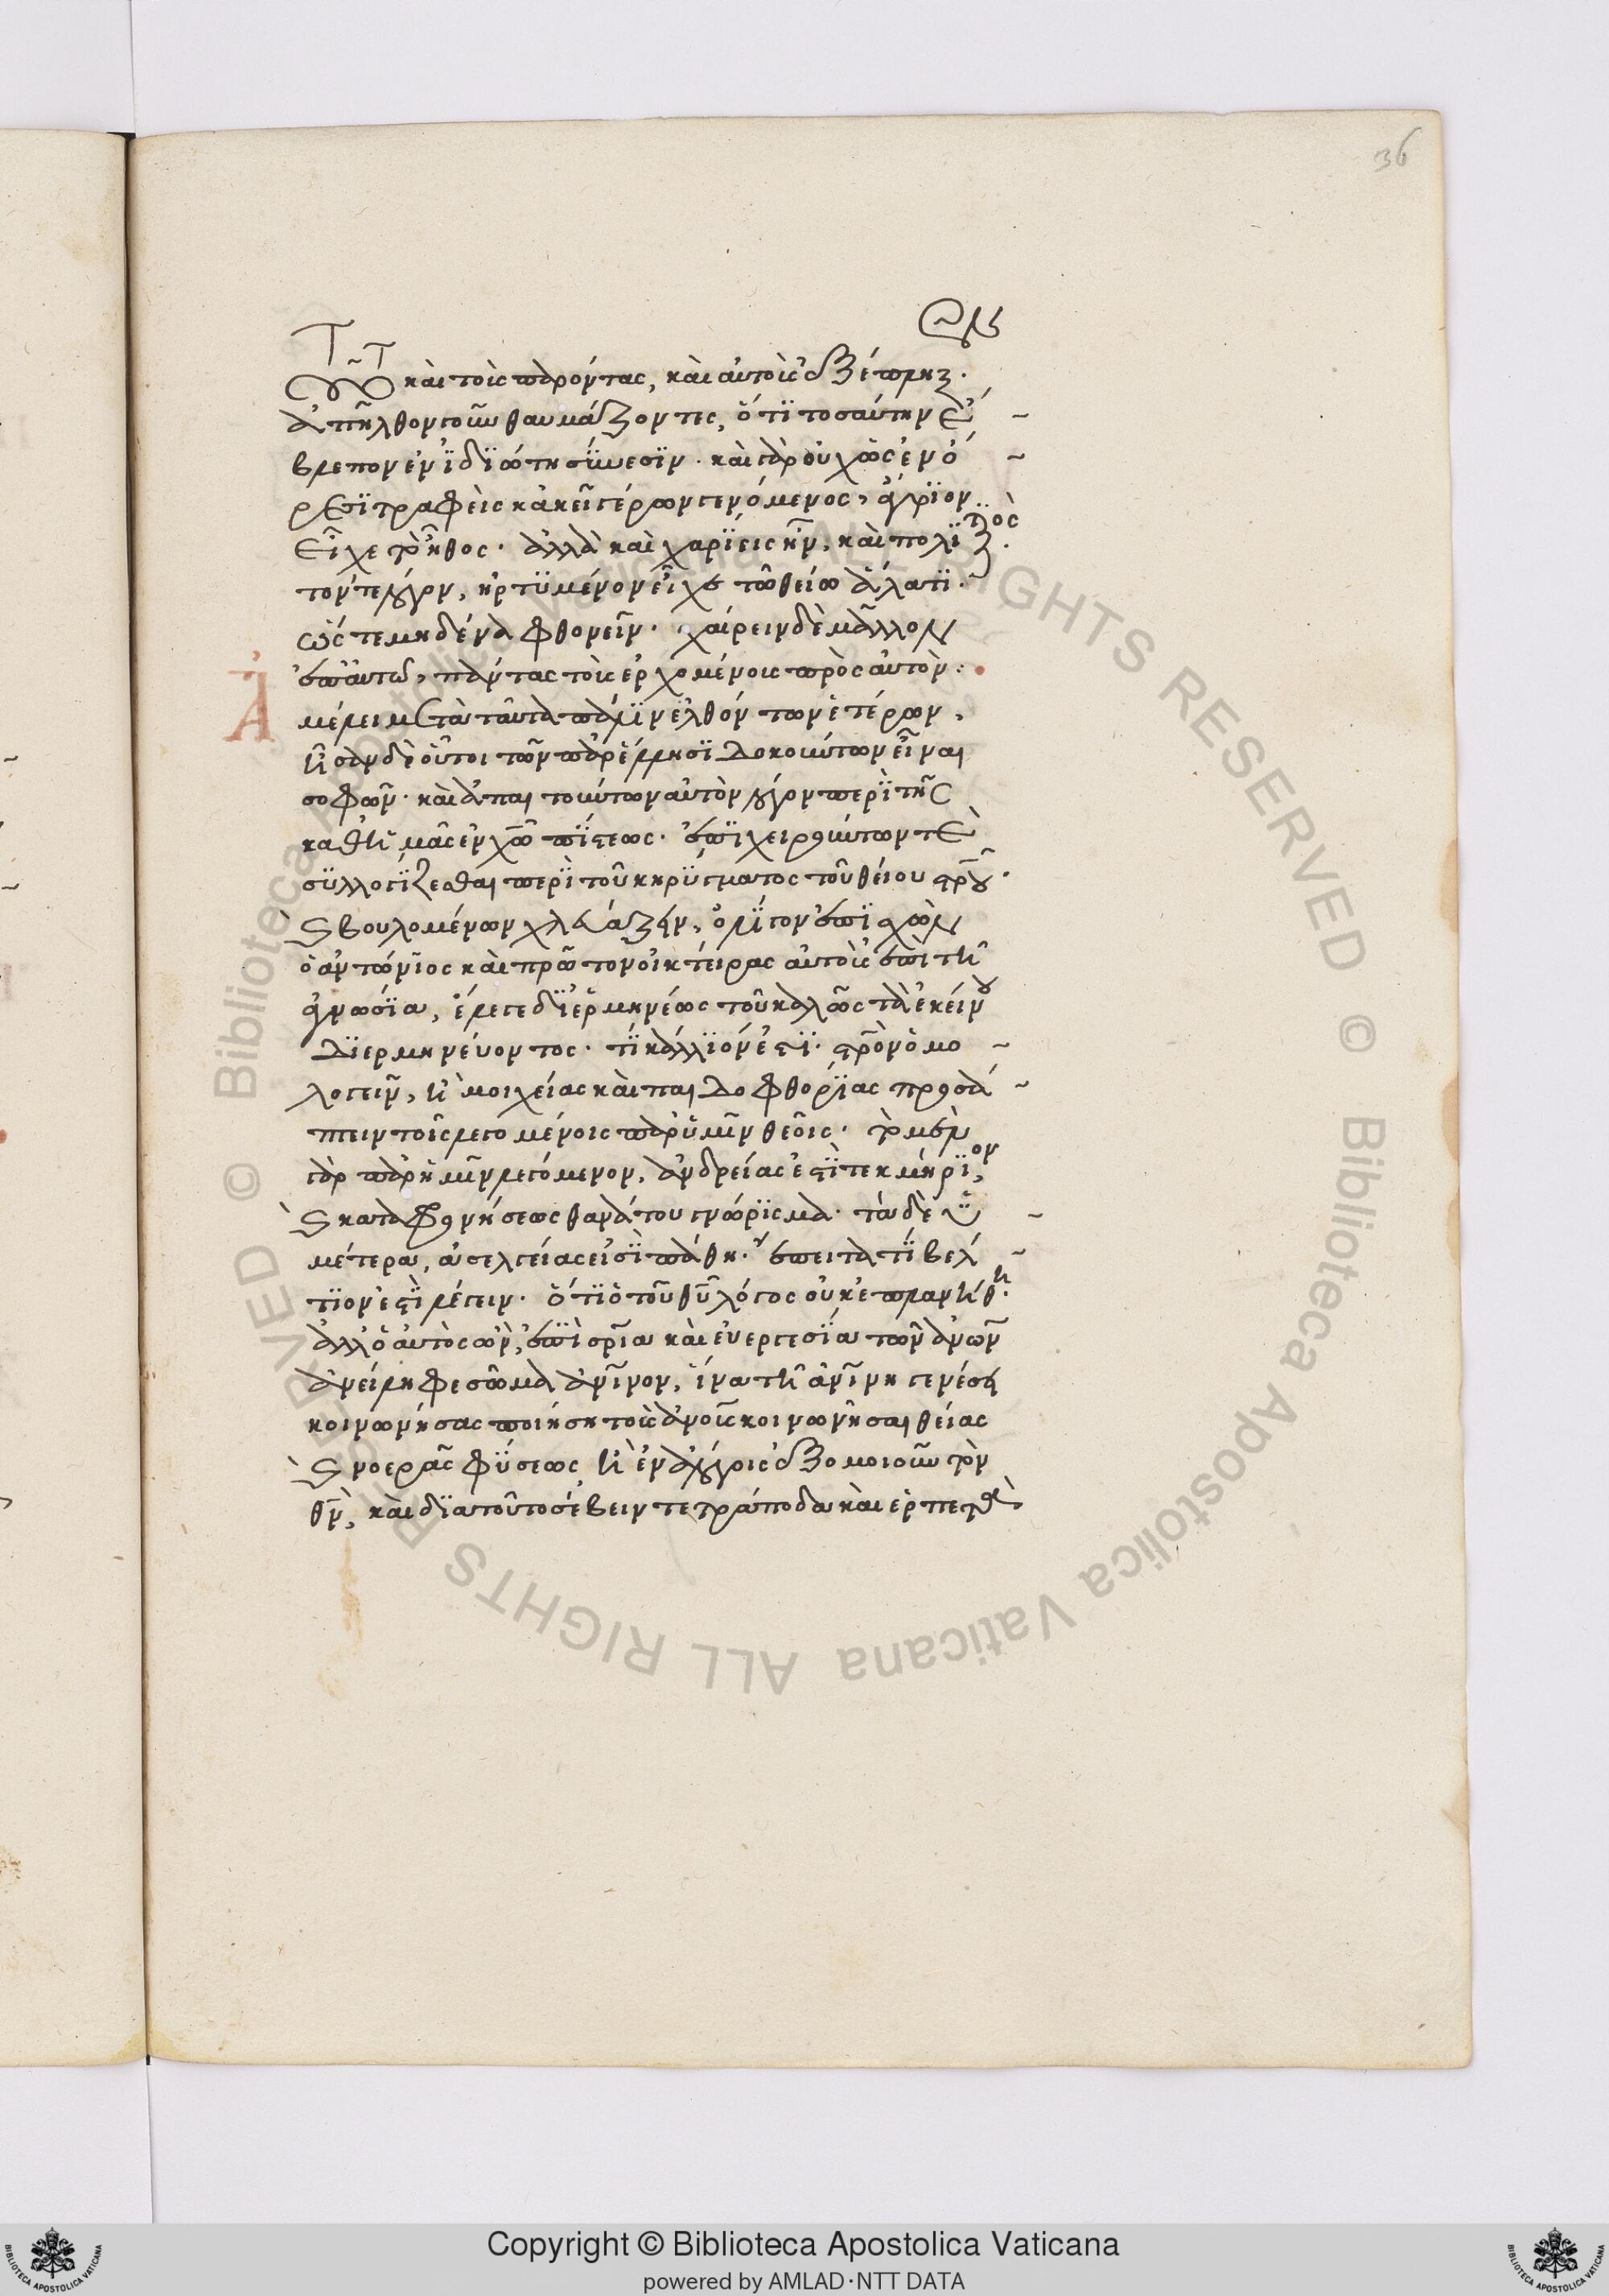 36
καὶ τοὺς παρόντας, καὶ αὐτοὺς ἐξέπληξ.
ἀπῆλθον γοῦν θαυμάζοντες, ὅτι τοσαύτην ἔ
βλεπον ἐν ἰδιώτη σύνεσιν. καὶ γὰρ οὐχ ὡς ἐν ὄ
ρει τραφεὶς κἀκεῖ γέρων γενόμενος, ἄγριον
εἶχε τὸ ἦθος. ἀλλὰ καὶ χαρίεις ἦν, καὶ πολιτικός.
τόν τε λόγον, ἠρτυμένον εἶχε τῶ θείω ἅλατι.
ὥς τε μηδένα φθονεῖν. χαίρειν δὲ μᾶλλον
ἐπαὐτῶ, πάντας τοὺς ἐρχομένους πρὸς αὐτόν:
Ἀμέλει μετὰ ταῦτα πάλιν ἐλθόντων ἑτέρων,
ἦσαν δὲ οὗτοι τῶν παρ ἕλλησι δοκούντων εἶναι
σοφῶν. καὶ ἀπαιτούντων αὐτὸν λόγον περὶ τῆς
καθ ἡμᾶς ἐν χῶ πίστεως. ἐπιχειρούντων τὲ
συλλογίζεσθαι περὶ τοῦ κηρύγματος τοῦ θείου στροῦ.
καὶ βουλομένων χλευάζειν, ὀλίγον ἐπισχὼν
ὁ ἀντώνιος καὶ πρῶτον οἰκτείρας αὐτοὺς ἐπὶ τῆ
ἀγνωσία, ἔλεγε δι ἑρμηνέως τοῦ καλῶς τὰ ἐκείνου
διερμηνεύοντος. τί κάλλιόν ἐστι. στρὸν ὁμο
λογεῖν, ἢ μοιχείας καὶ παιδοφθορίας προσά
πτειν τοῖς λεγομένοις παρ ὑμῖν θεοῖς. τὸ μὲν
γὰρ παρ ἡμῖν λεγόμενον, ἀνδρείας ἐστὶ τεκμήριον,
καὶ καταφρονήσεως θανάτου γνώρισμα. τὰ δὲ ὑ
μέτερα, ἀσελγείας εἰσὶ πάθη. ἔπειτα τί βέλ
τιον ἐστὶ λέγειν. ὅτι ὁ τοῦ θυ λόγος οὐκ ἐπλανήθη.
ἀλλ ὁ αὐτὸς ὢν, ἐπὶ σρία καὶ εὐεργεσία τῶν ἀνων
ἀνείληφε σῶμα ἀνινον, ἵνα τῆ ἀνινη γενέσει
κοινωνήσας ποιήση τοὺς ἀνους κοινωνῆσαι θείας
καὶ νοερᾶς φύσεως, ἢ ἐν ἀλόγοις ἐξομοιοῦν τὸν
θν, καὶ διατοῦτο σέβειν τετράποδα καὶ ἑρπετὰ
Copyright © Biblioteca Apostolica Vaticana
powered by AMLAD·NTT DATA